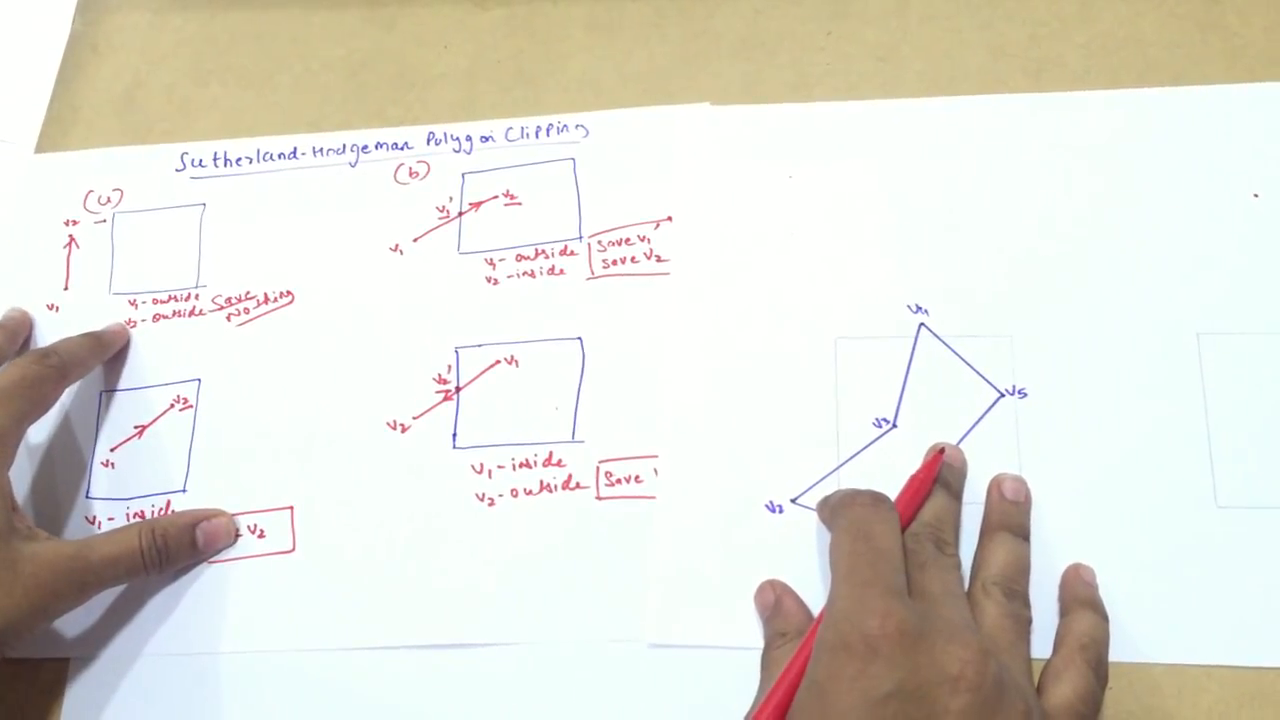 Sutherland-Hodgeman Polygon Clipping
(a)
v2
v1
v1-outside
v2-outside Save
Nothing
(b)
v1'
v2
v1
v1-outside
v2-inside
save v1'
save v2
v2
v1
v1-inside
v2
v2'
v1
v2
v1-inside
v2-outside
Save
v4
v5
v3
v2